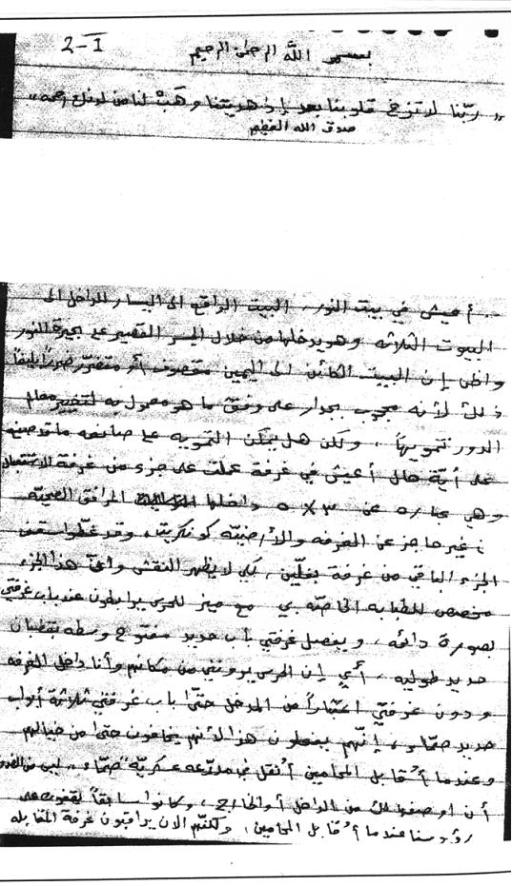 2-I
بسم الله الرحمن الرحيم
" ربّنا لا تزغ قلوبنا بعد إذ هديتنا وهَبْ لنا من لدنك رحمة "
صدق الله العظيم
... أعيش في بيت النور، البيت الواقع الى اليسار للداخل الى
البيوت الثلاثه وهو يدخلها من خلال الجسر القصير على بحيرة النور
واظن إن البيت الكائن الى اليمين مقصوف أو متضرر ضرراً بليغاً
ذلك لأنه محجوب بجدار على وفق ما هو معمول به لتغيير معالم
الدور تمويهاً، ولكن هل يمكن التمويه على صانعه
على أيّة حال أعيش في غرفة عملت على جزء من غرفة الاستقبال
وهي عباره عن ٣×٥ م داخلها المرافق الصحيّه
بغير حاجز عن الغرفه والأرضيّه كونكريت، وقد غطّوا سقف
الجزء الباقي من غرفة بفلّين، كي لا يظهر النقش واعني هذا الجزء
مخصص للطبابه الخاصّه بي مع ميز للحرس يرابطون عند باب غرفتي
بصورة دائمه، ويفصل غرفتي باب حديد مفتوح وسطه بقضبان
حديد طوليه، أي إن الحرس يروني من مكانهم وأنا داخل الغرفه
ودون غرفتي اعتباراً من المدخل حتّى باب غرفتي ثلاثة أبواب
حديد صمّاء، إنّهم يفعلون هذا لأنهم يخافون حتى من خيالهم
وعندما أُقابل المحامين أُنقل في مدرّعه عسكريّه صمّاء، ليس من
أن اوصفها لك من الداخل أو الخارج، وكانوا سابقاً يقفون على
رؤوسنا عندما أُقابل المحامين، ولكنهم الان يراقبون غرفة المقابله